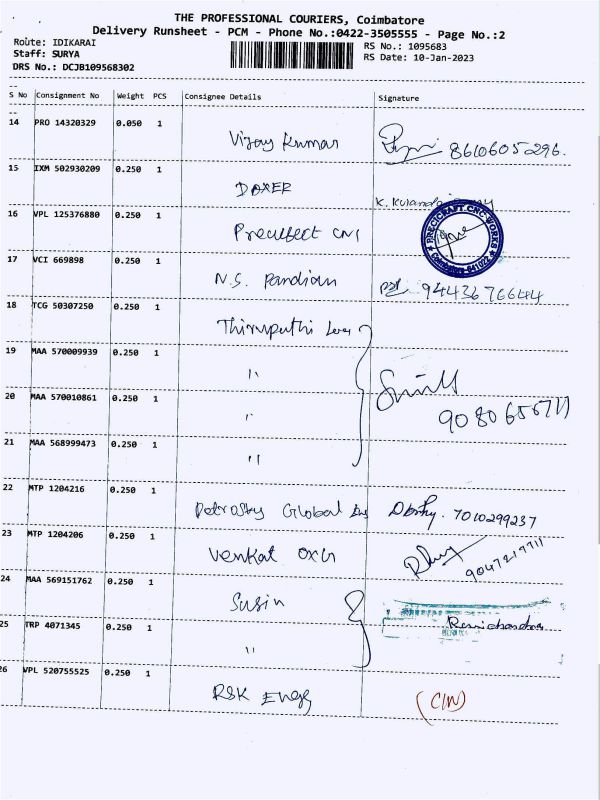 THE PROFESSIONAL COURIERS, Coimbatore
Delivery Runsheet - PCM - Phone No.:0422-3505555 - Page No.:2
Route: IDIKARAI
RS No.: 1095683
Staff: SURYA
RS Date: 10-Jan-2023
DRS No.: DCJB109568302
S No Consignment No Weight PCS Consignee Details Signature
14 PRO 14320329 0.050 1 Vijay Kumar 8610605296.
15 IXM 502930209 0.250 1 DOXER
16 VPL 125376880 0.250 1
PRECICRAFT CNC WORKS
Coimbatore-641022
17 VCI 669898 0.250 1 N.S. Pandian 9443676644
18 TCG 50307250 0.250 1 Thirupathi
19 MAA 570009939 0.250 1 "
20 MAA 570010861 0.250 1 "
21 MAA 568999473 0.250 1 "
22 MTP 1204216 0.250 1 Global 7010299237
23 MTP 1204206 0.250 1 Venkat
24 MAA 569151762 0.250 1 Susin
25 TRP 4071345 0.250 1 "
26 VPL 520755525 0.250 1 RSK Engg (CIN)